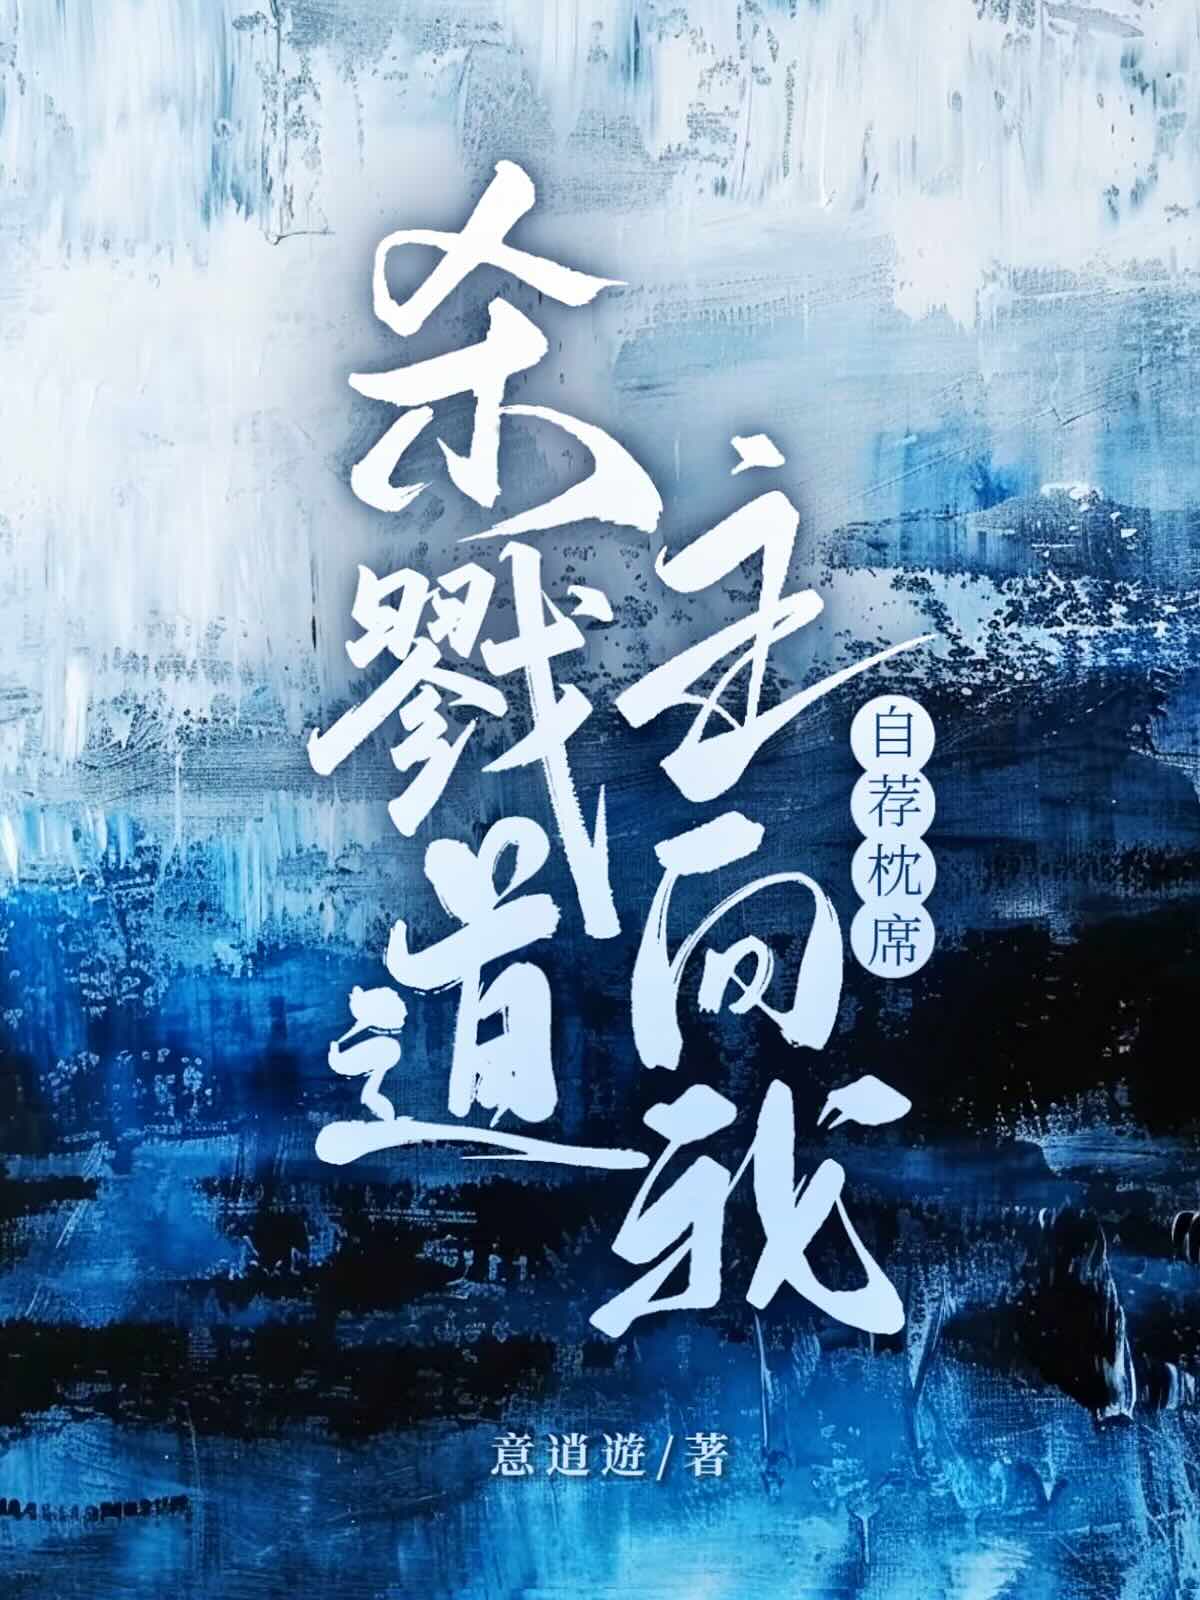 杀戮道
主向我
自荐枕席
意逍遊/著